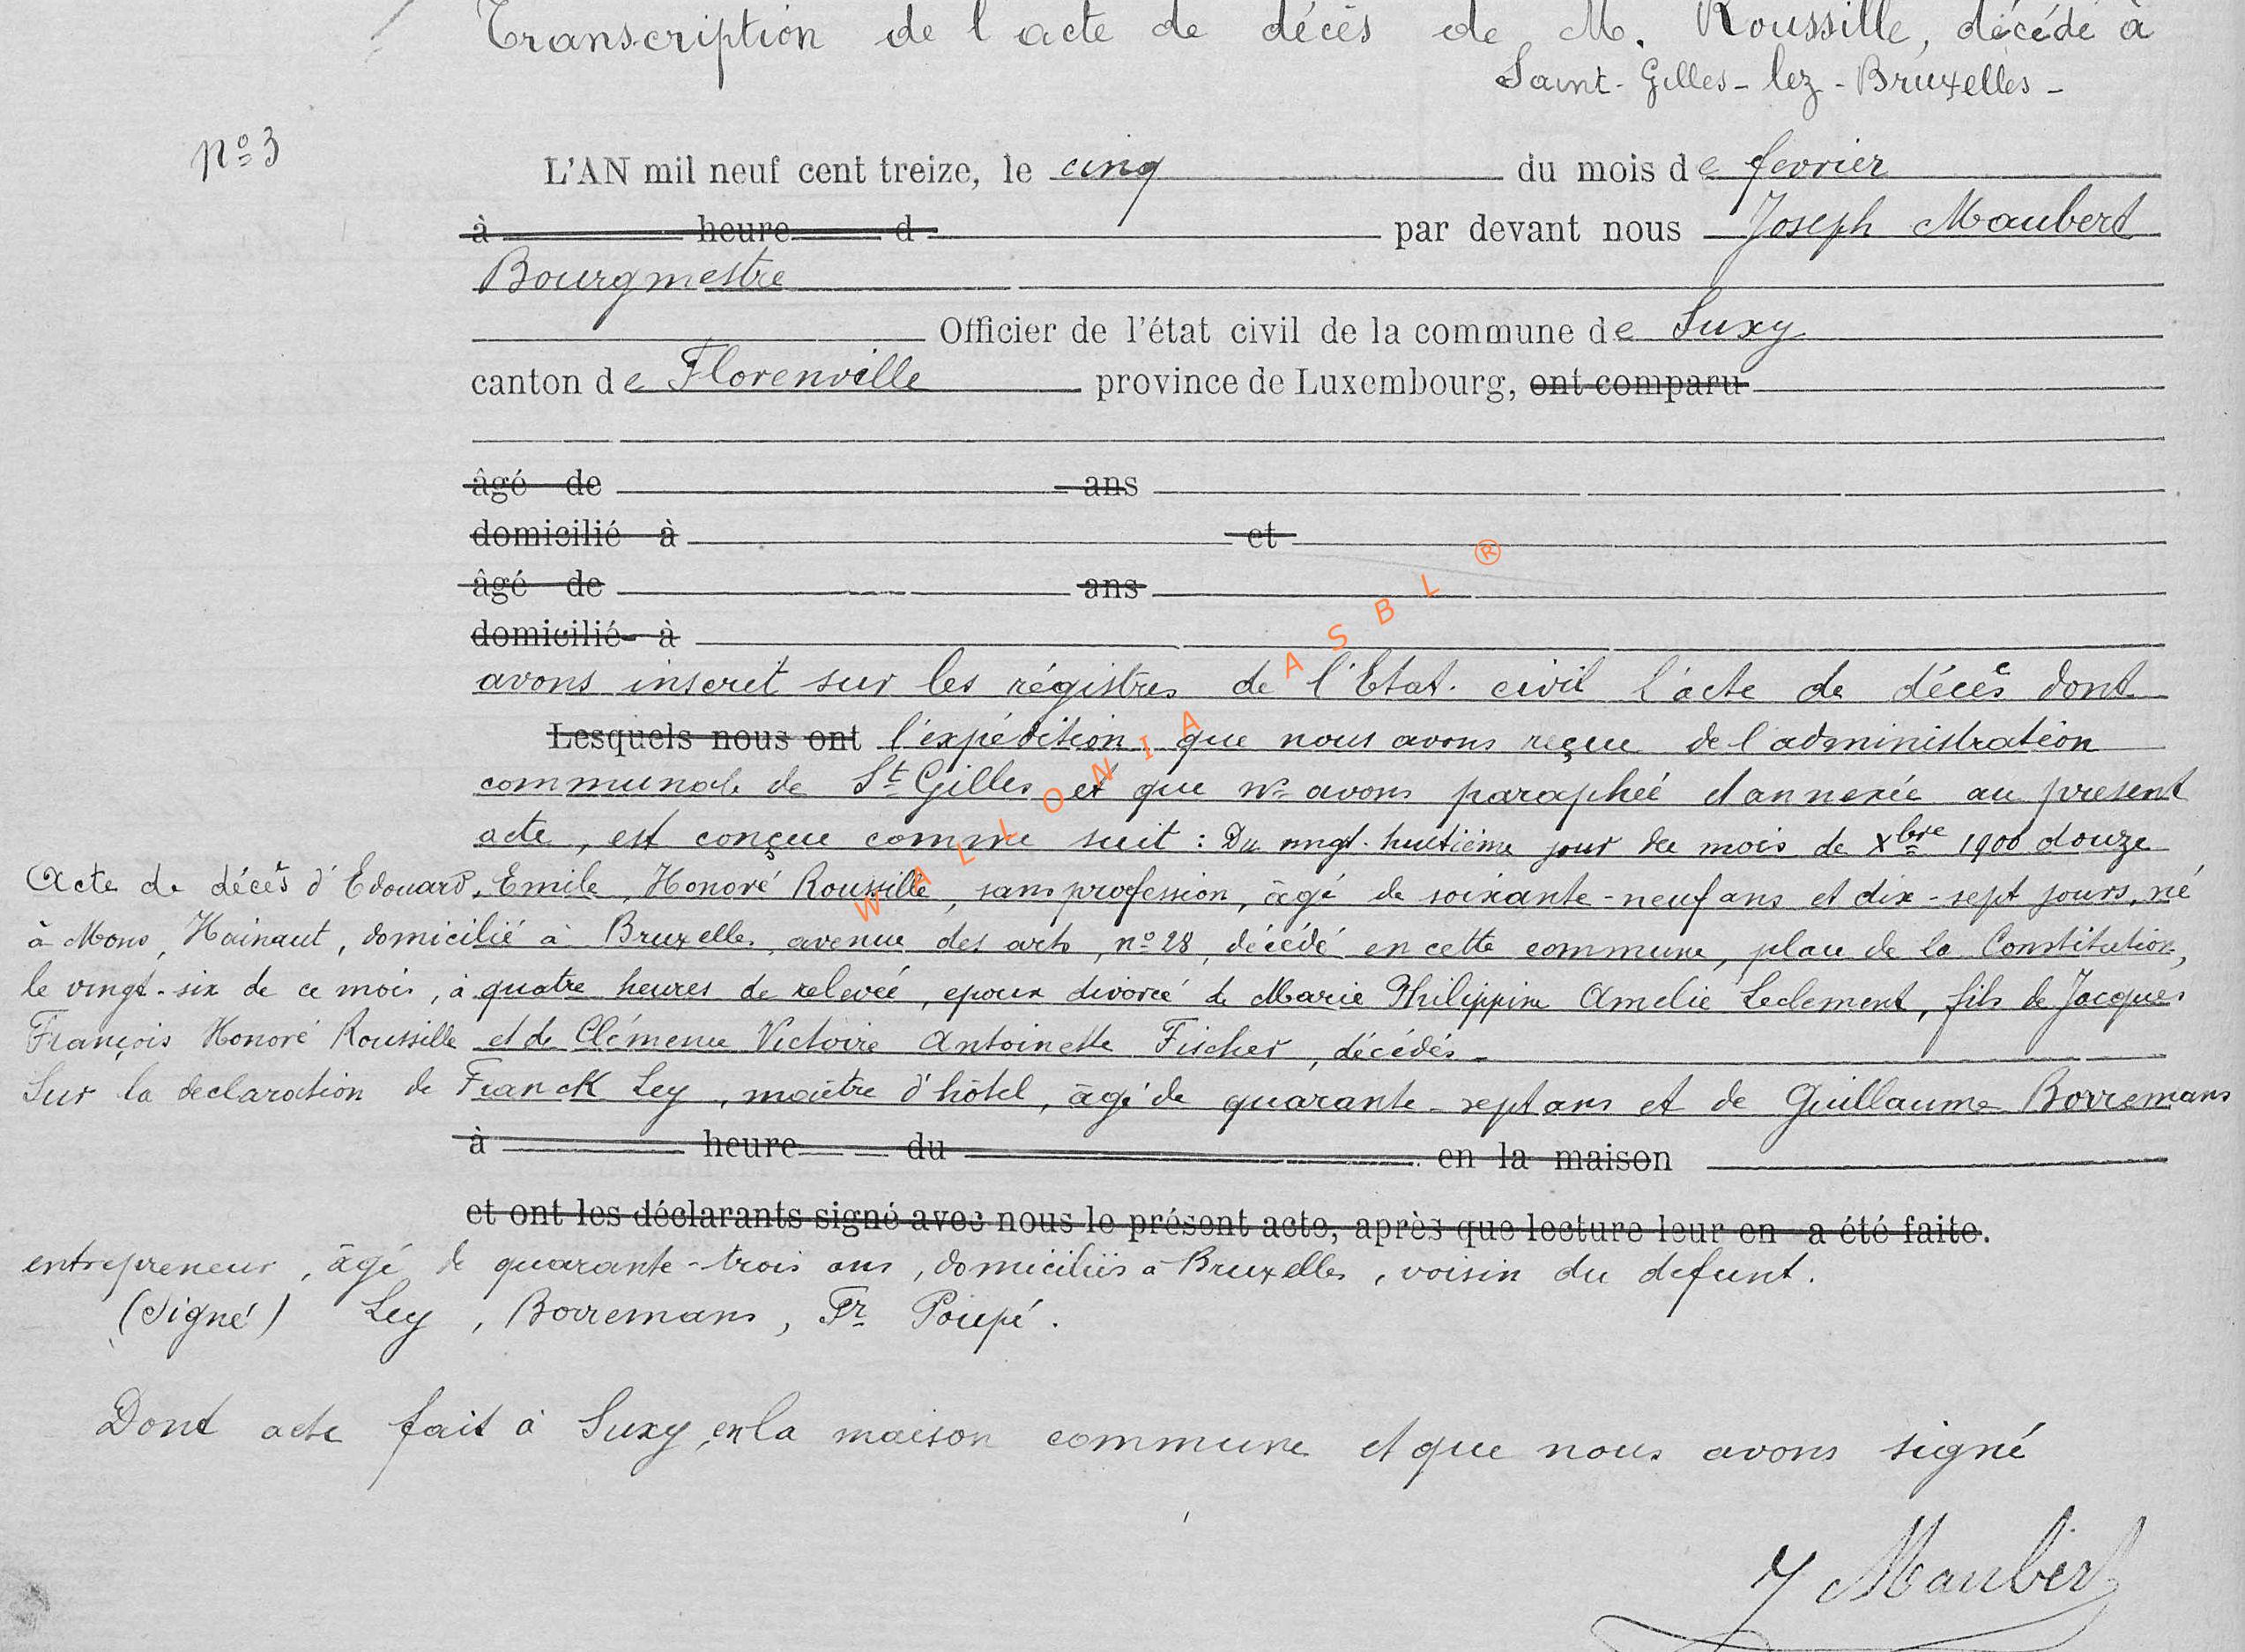 Transcription de l'acte de décès de M. Roussille, décédé à
Saint-Gilles-lez-Bruxelles-
N° 3
L'AN mil neuf cent treize, le cinq du mois de fevrier
à heure d par devant nous Joseph Maubert
Bourgmestre
Officier de l'état civil de la commune de Suxy
canton de Florenville province de Luxembourg, ont comparu
âgé de ans
domicilié à et
âgé de ans
domicilié à
avons inscrit sur les régistres de l'Etat-civil l'acte de décès dont
Lesquels nous ont l'expédition, que nous avons reçue de l'administration
communale de St Gilles et que ns avons paraphéé et annexée au present
acte, est conçue comme suit : Du vingt-huitième jour du mois de Xbre 1900 douze
Acte de décès d'Edouard, Emile, Honoré Roussille, sans profession, âgé de soixante-neuf ans et dix-sept jours, né
à Mons, Hainaut, domicilié à Bruxelles, avenue des arts, n° 28, décédé en cette commune, place de la Constitution,
le vingt-six de ce mois, à quatre heures de relevéé, epoux divorcé de Marie Philippine Amelie Leclement, fils de Jacques
François Honoré Roussille et de Clémence Victoire Antoinette Fischer, décédés-
Sur la declaration de Franck Ley, maître d'hôtel, âgé de quarante-sept ans et de Guillaume Borremans
à heure du en la maison
et ont les déclarants signé avec nous le présent acte, après que lecture leur en a été faite.
entrepreneur, âgé de quarante-trois ans, domiciliés à Bruxelles, voisin du defunt.
(Signé) Ley, Borremans, Fr Poupé.
Dont acte fait à Suxy, en la maison commune et que nous avons signé
J Maubert
WALLONIA ASBL ®